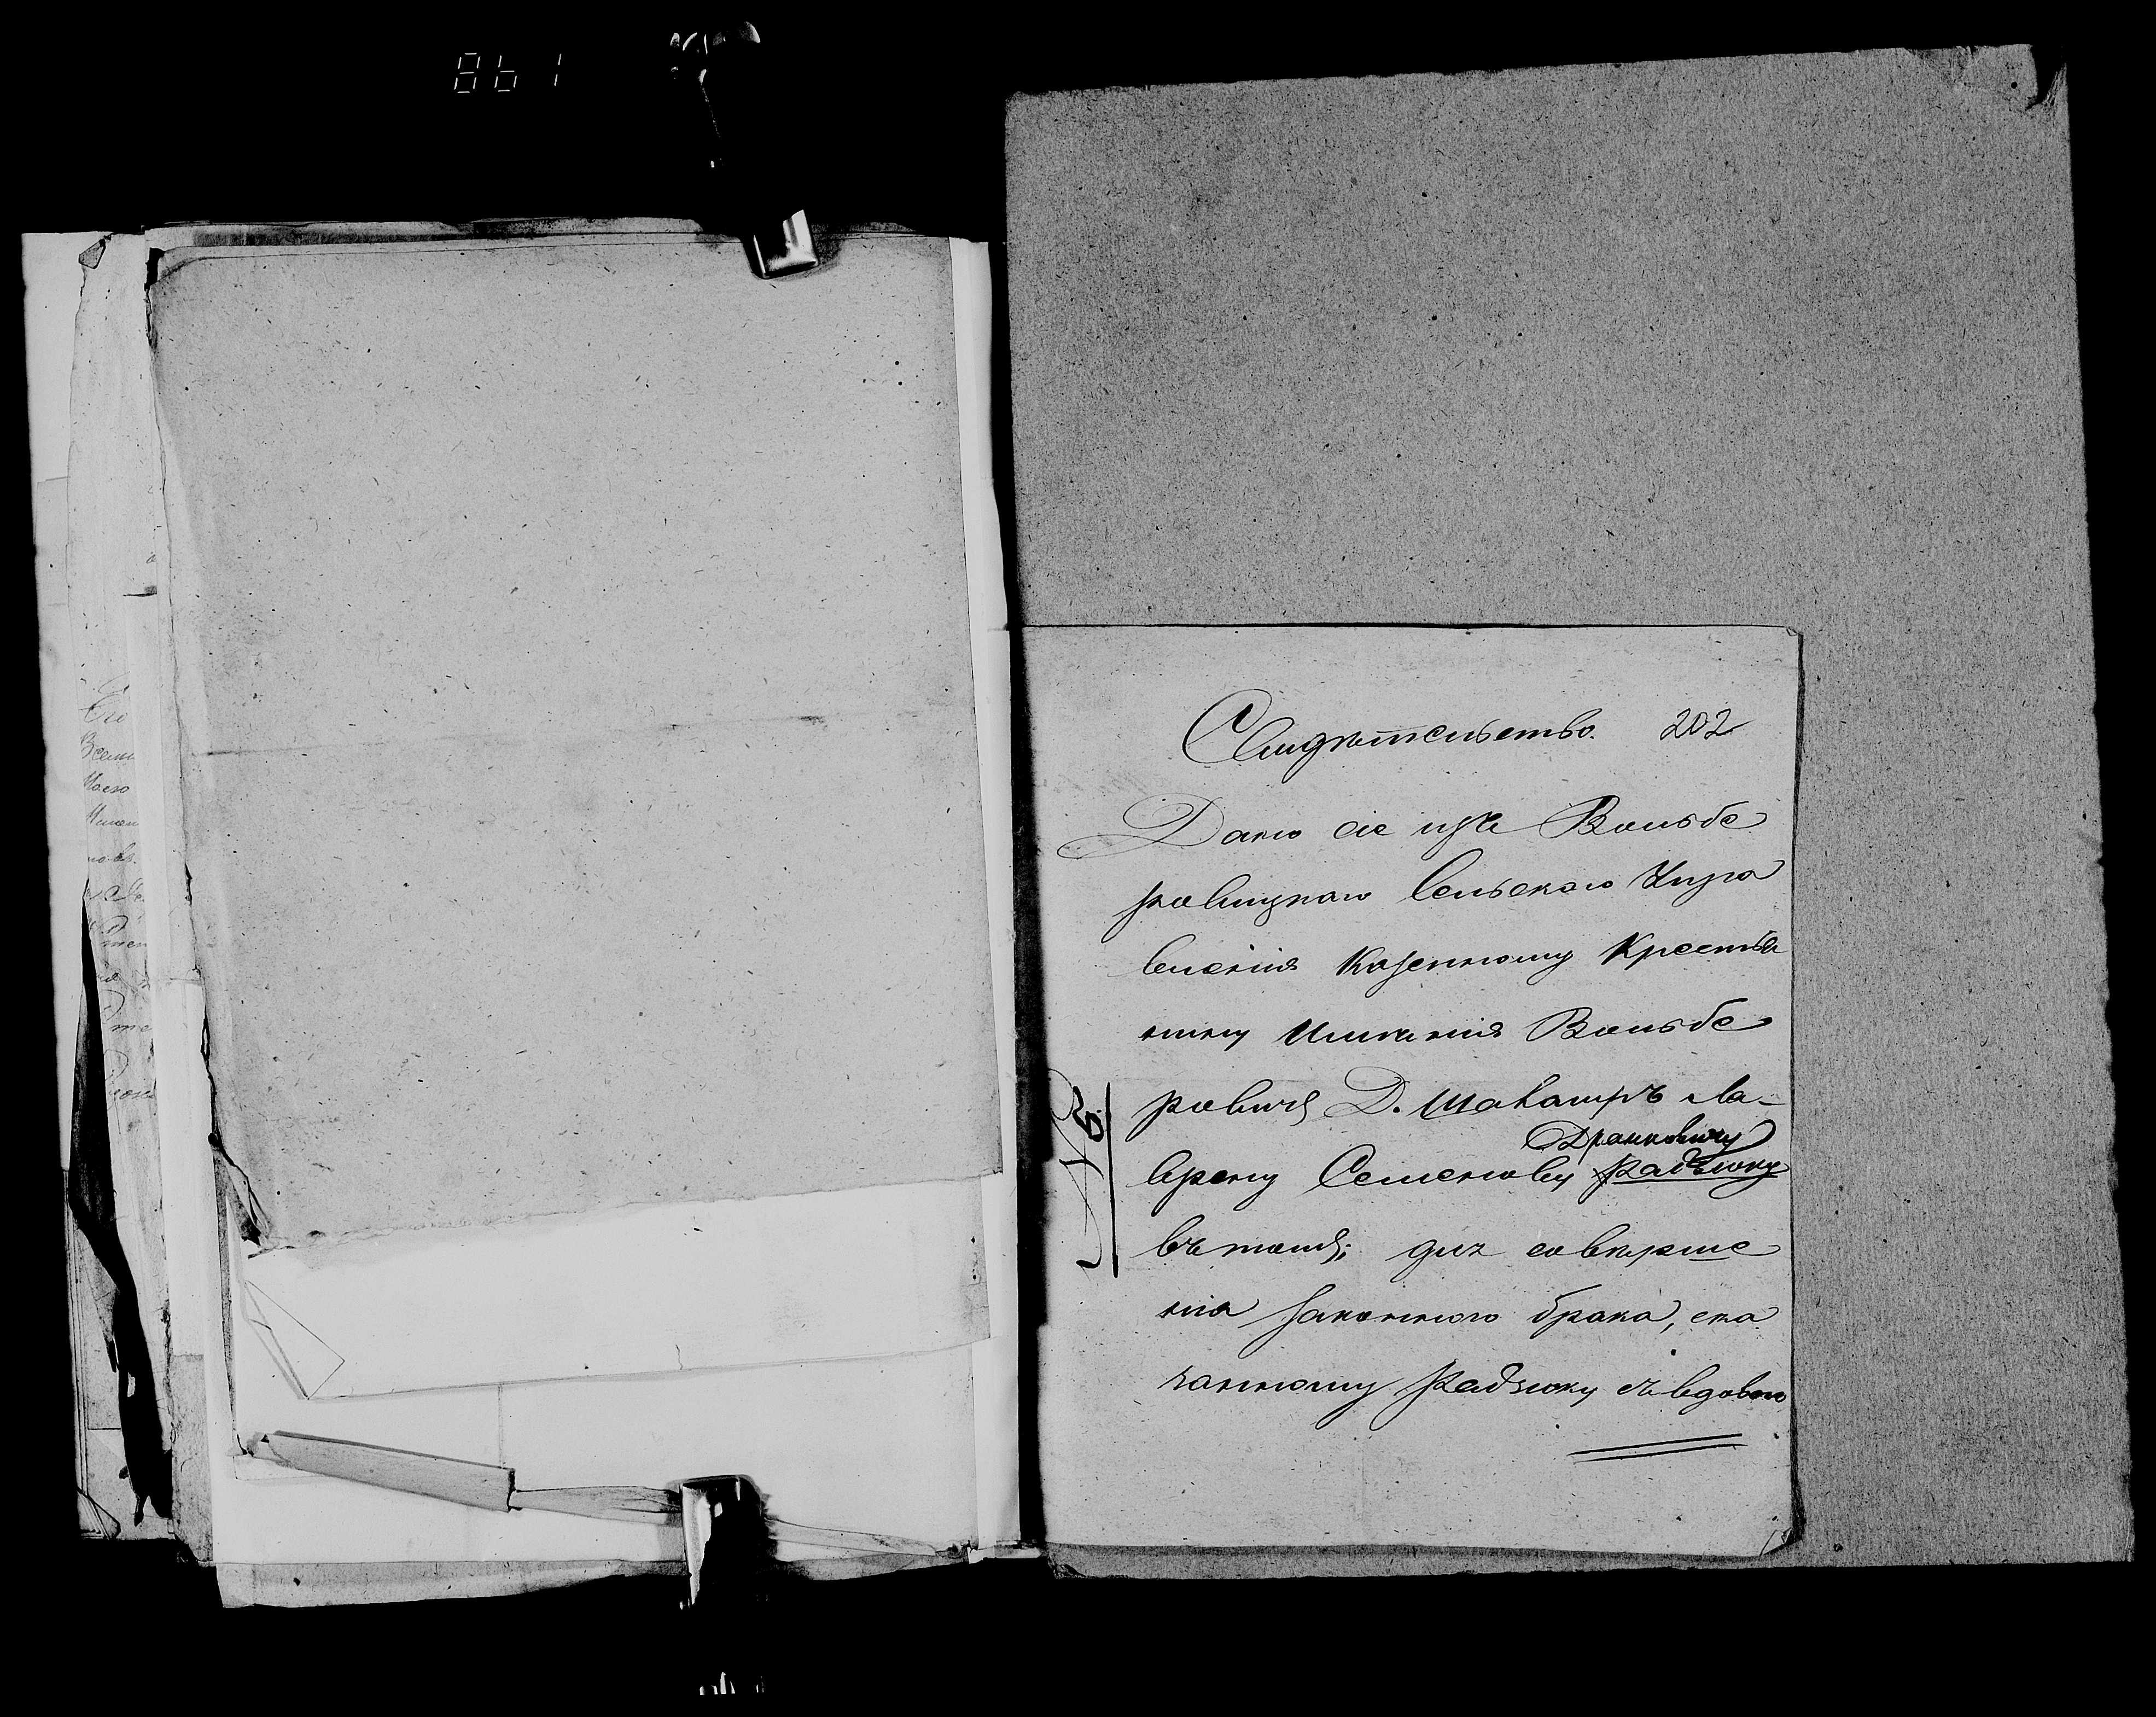 861
Свидѣтельство. 202
Дано сіе изъ Вольбе
ровицкаго Сельскаго Упра
вленія Казенному Крестья
нину Имѣнія Вольбе
ровичъ Д.
Ла-
Дранковичу
врену Семенову Радзюку
въ томъ; для совѣрше
нія законнаго брака, ска
занному Радзюку съ вдовою
№ 5.